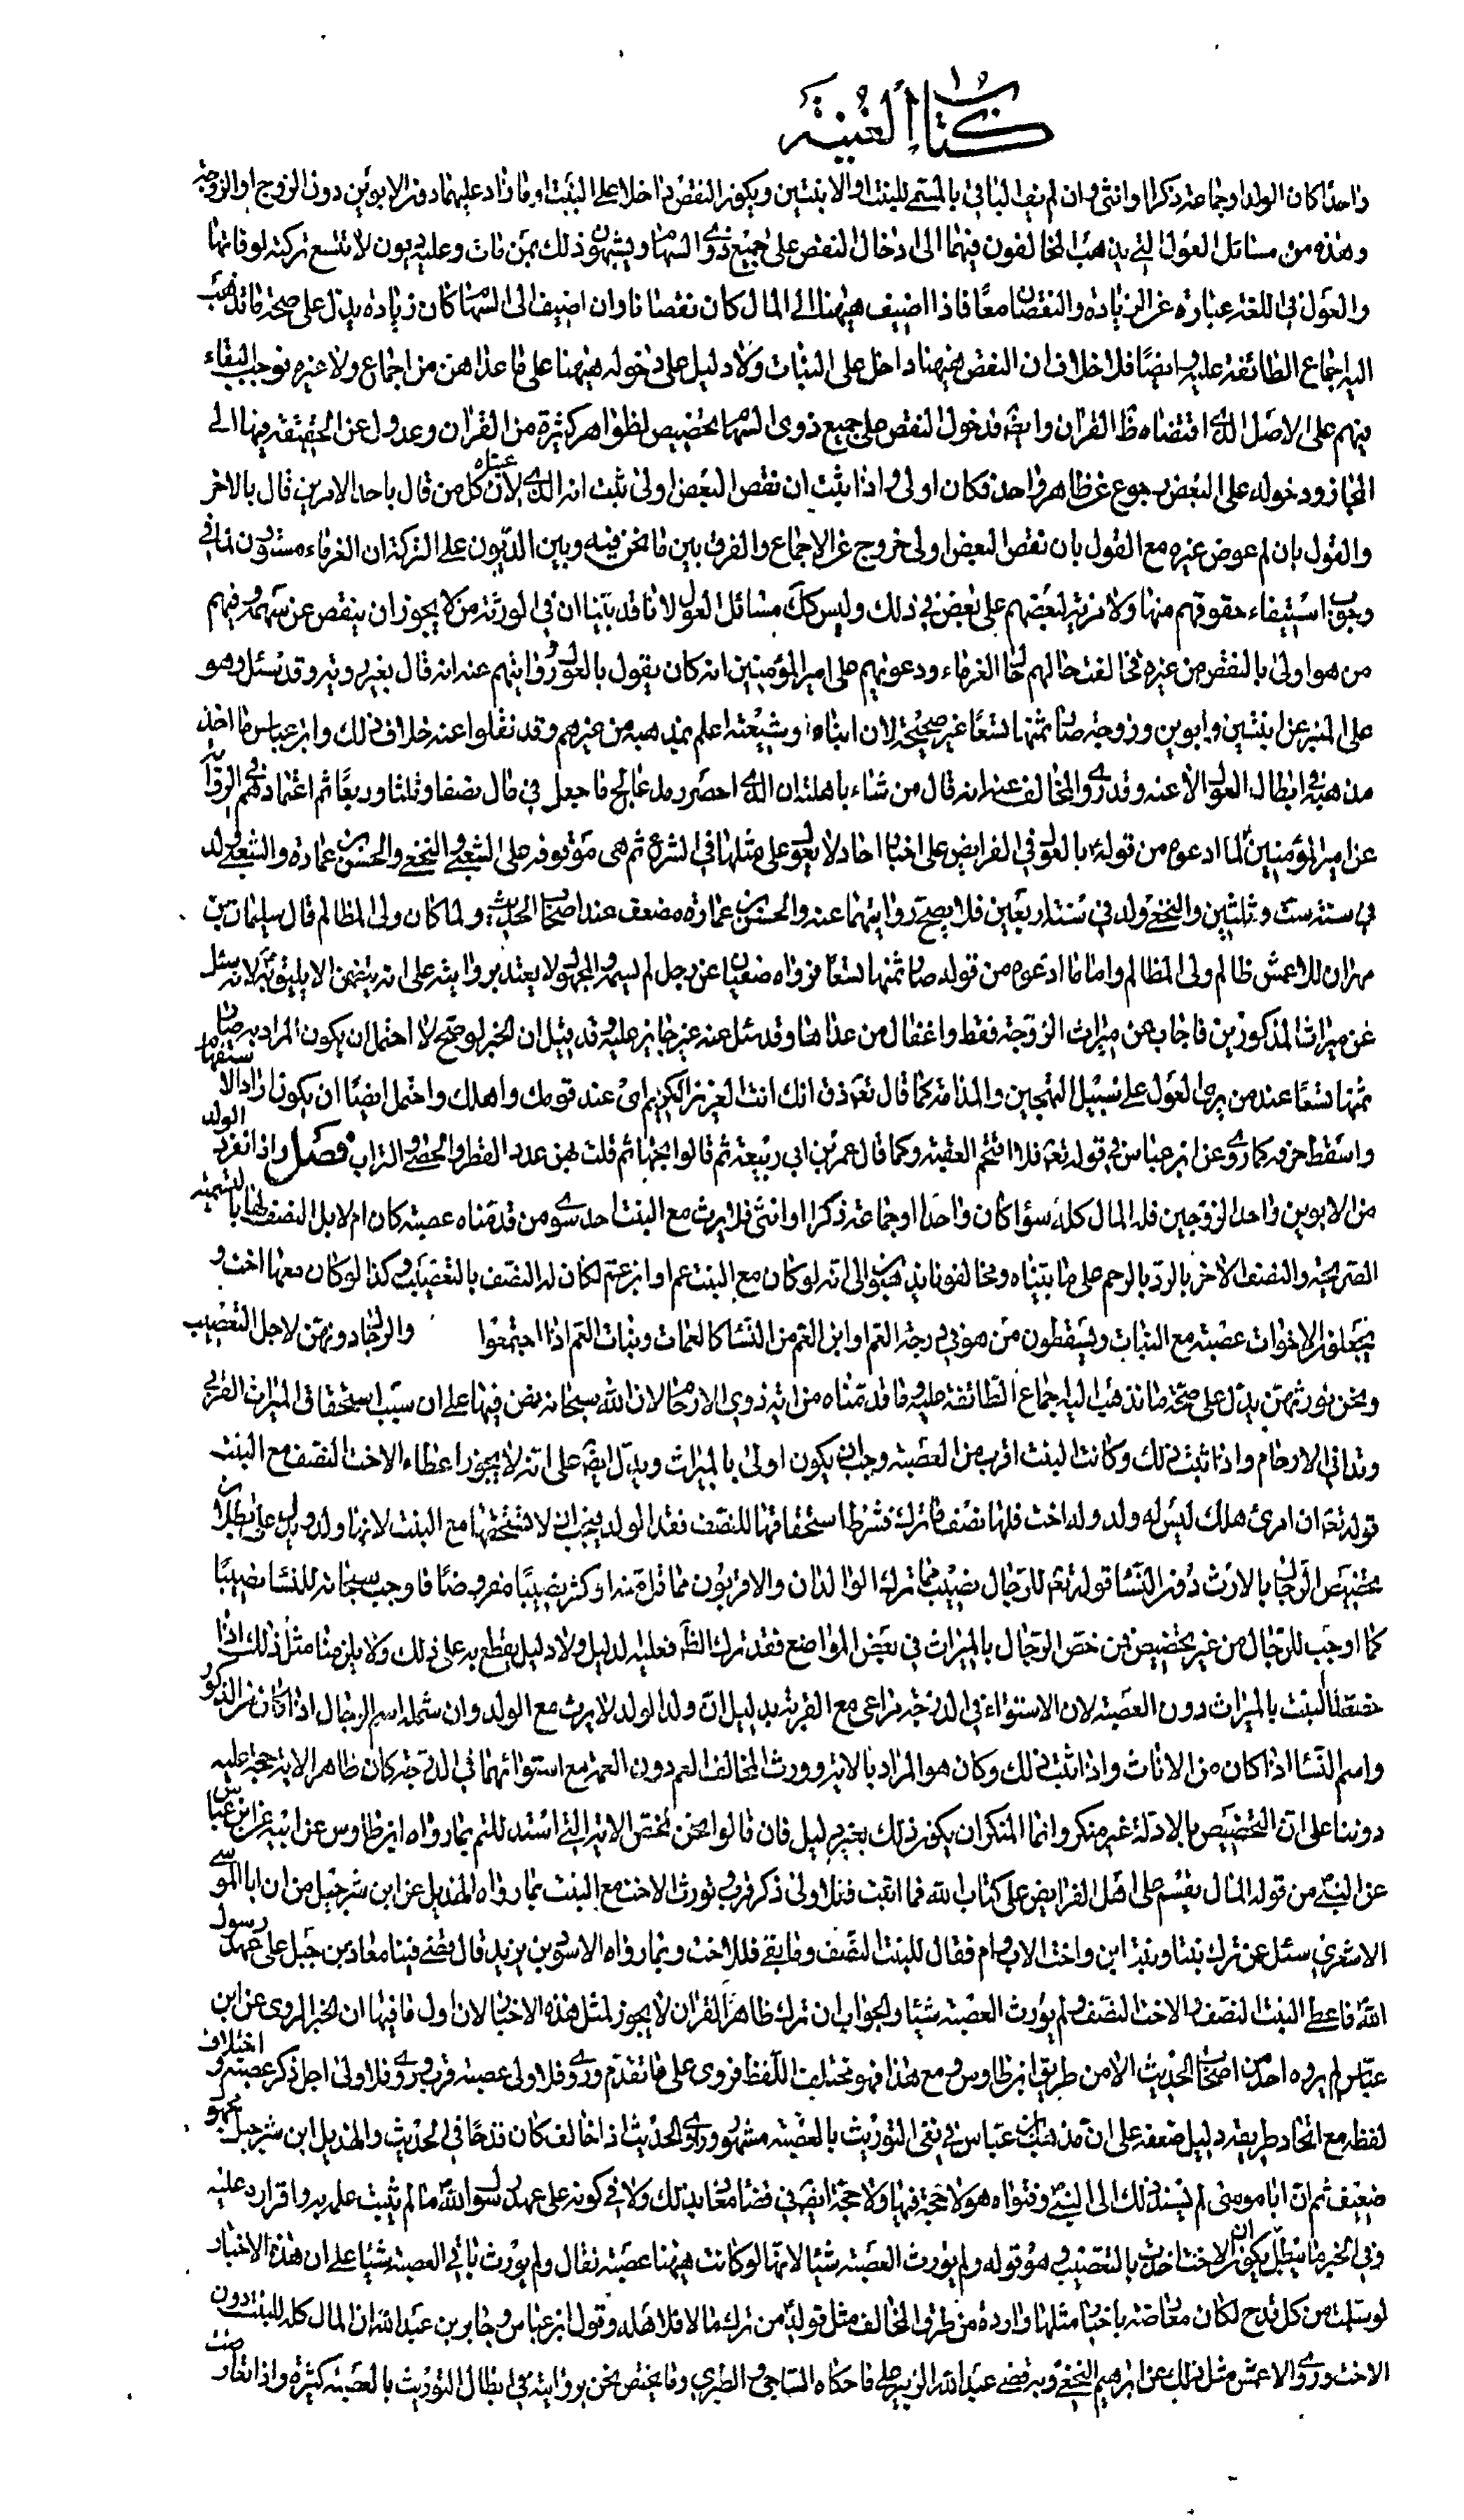 كتاب الغنية
واحدًا كان الولد او جماعة ذكرا او انثى وان لم يف الباقي بالمسمى للبنت او الابنتين ويكون النقص داخلا على البنت او ما زاد عليهما دون الابوين دون الزوج او الزوجة
وهذه من مسائل العول التي يذهب المخالفون فيها الى ادخال النقص على جميع ذوى السهام ويشبهون ذلك بمن مات وعليه ديون لا تتسع تركته لوفائها
والعول في اللغة عبارة عن الزيادة والنقصان معًا فاذا اضيف هيهنا الى المال كان نقصانا وان اضيف الى السهام كان زيادة يدل على صحة ما نذهب
اليه اجماع الطائفة عليه وايضًا فلا خلاف ان النقص هيهنا داخل على البنات ولا دليل على دخوله هيهنا على ما عداهن من اجماع ولا غيره فوجب البقاء
فيهم على الاصل الذي اقتضاه ظ القران وايضً فدخول النقص على جميع ذوى السهام تخصيص لظواهر كثيرة من القران وعدول عن الحقيقة فيها الى
المجاز ودخوله على البعض رجوع عن ظاهر واحد فكان اولى واذا ثبت ان نقص البعض اولى ثبت انه الذي عيناه لان كل من قال باحد الامرين قال بالاخر
والقول بان لم عوض غيره مع القول بان نقص البعض اولى خروج عن الاجماع والفرق بين ما نحن فيه وبين الديون على التركة ان الغرماء مستوون في
وجوب استيفاء حقوقهم منها ولا مزية لبعضهم على بعض في ذلك وليس كك مسائل العول لانا قد بينا ان في الورثة من لا يجوز ان ينقص عن سهمه وفيهم
من هو اولى بالنقص من غيره فخالفت حالهم حال الغرماء ودعويهم على امير المؤمنين انه كان يقول بالعول وروايتهم عنه انه قال بغير روية وقد سئل وهو
على المنبر عن بنتين وابوين وزوجة صار ثمنها تسعًا غير صحيحة لان ابناءه وشيعته اعلم بمذهبه من غيرهم وقد نقلوا عنه خلاف ذلك وابن عباس ما اخذ
مذهبه في ابطال العول الا عنه وقد روى المخالف عنه انه قال من شاء باهلته ان الذي احصى رمل عالج ما جعل في مال نصفا وثلثا وربعًا ثم اعتمادهم في الرواية
عن امير المؤمنين لما ادعوه من قوله بالعول في الفرايض على اخبار احاد لا يعول على مثلها في الشرع ثم هى موقوفة على الشعبي والنخعي والحسن بن عمارة والشعبي ولد
في سنة ست وثلثين والنخعي ولد في سنة اربعين فلا يصح روايتهما عنه والحسن بن عمارة مضعف عند اصحاب الحديث ولما كان ولى المظالم قال سليمان بن
مهران للاعمش ظالم ولى المظالم واما ما ادعوه من قوله صار ثمنها تسعًا فرواه سفيان عن رجل لم يسمه والمجهول لا يعتد بروايته على انه يتضمن ما لا يليق به لانه سئل
عن ميراث المذكورين فاجاب عن ميراث الزوجة فقط واغفال من عداها وقد سئل عنه غير جايز عليه وقد قيل ان الخبر لو صح لا احتمل ان يكون المراد به صار
ثمنها تسعًا عند من يرى العول على سبيل التهجين والمذمة كما قال تع ذق انك انت العزيز الكريم اى عند قومك واهلك واحتمل ايضًا ان يكون اراد الاستفهام
واسقط حرفه كما روى عن ابن عباس في قوله تع فلا اقتحم العقبة وكما قال عمر بن ابى ربيعة ثم قالوا تحبها ثم قلت بهرا عدد القطر والحصى والتراب فصل واذا انفرد الولد
من الابوين واحد الزوجين فله المال كله سواء كان واحدًا او جماعة ذكرا او انثى فلا يرث مع البنت احد سوى من قدمناه عصبة كان ام لا بل النصف لها بالتسمية
الصريحة والنصف الاخر بالرد بالرحم على ما بيناه ومخالفونا يذهبون الى انه لو كان مع البنت عم او ابن عم لكان له النصف بالتعصيب وكذا لو كان معها اخت و
يجعلون الاخوات عصبة مع البنات ويسقطون من هو في درجة العم او ابن العم من النساء كالعمات وبنات العم اذا اجتمعوا والرجال دونهن لاجل التعصيب
ونحن نورثهن يدل على صحة ما نذهب اليه اجماع الطائفة عليه وما قدمناه من اية ذوى الارحام لان الله سبحانه نص فيها على ان سبب استحقاق الميراث القربى
وتدانى الارحام واذا ثبت ذلك وكانت البنت اقرب من العصبة وجب ان يكون اولى بالميراث ويدل ايضً على انه لا يجوز اعطاء الاخت النصف مع البنت
قوله تع ان امرئ هلك ليس له ولد وله اخت فلها نصف ما ترك فشرط استحقاقها للنصف فقد الولد فيجب ان لا تستحقها مع البنت لانها ولد ويدل على بطلان
تخصيص الرجال بالارث دون النساء قوله تع للرجال نصيب مما ترك الوالدان والاقربون مما قل منه او كثر نصيبًا مفروضًا فاوجب سبحانه للنساء نصيبًا
كما اوجب للرجال من غير تخصيص فمن خص الرجال بالميراث في بعض المواضع فقد ترك الظ فعليه الدليل ولا دليل يقطع به على ذلك ولا يلزمنا مثل ذلك اذا
خصصنا البنت بالميراث دون العصبة لان الاستواء في الدرجة مراعى مع القربة بدليل ان ولد الولد لا يرث مع الولد وان شمله اسم الرجال اذا كان من الذكور
واسم النساء اذا كان من الاناث واذا ثبت ذلك وكان هو المراد بالاية وورث المخالف العم دون العمة مع استوائهما في الدرجة كان ظاهر الاية حجة عليه
دوننا على ان التخصيص بالادلة غير منكر وانما المنكر ان يكون ذلك بغير دليل فان قالوا نحن نخص الاية التي استدللتم بما رواه ابن طاوس عن ابيه عن ابن عباس
عن النبي من قوله المال يقسم على اهل الفرايض على كتاب الله فما ابقت فلاولى ذكر قرب ونورث الاخت مع البنت بما رواه الهذيل عن ابن شرحبيل من ان ابا موسى
الاشعري سئل عن ترك بنتا وبنت ابن واخت لاب وام فقال للبنت النصف وما بقي فللاخت وبما رواه الاسود بن يزيد قال قضى فينا معاذ بن جبل على عهد رسول
الله فاعطى البنت النصف والاخت النصف ولم يورث العصبة شيئا والجواب ان ترك ظاهر القران لا يجوز لمثل هذه الاخبار لان اول ما فيها ان الخبر المروى عن ابن
عباس لم يروه احد من اصحاب الحديث الا من طريق ابن طاوس ومع هذا فهو مختلف اللفظ فروى على ما تقدم وروى فلاولى عصبة قرب وروى فلاولى اجل ذكر عصبة واختلاف
لفظه مع اتحاد طريقه دليل ضعفه على ان مذهب ابن عباس في نفى التوريث بالعصبة مشهور وراوى الحديث اذا خالف كان قدحًا في الحديث والهذيل ابن شرحبيل مجهول
ضعيف ثم ان ابا موسى لم يسند ذلك الى النبي وفتواه هو لا حجة فيها ولا حجة ايضً في قضاء معاذ بذلك ولا في كونه على عهد رسول الله ما لم يثبت علمه به واقراره عليه
وفي الخبر ما يبطل ان يكون الاخت اخذت بالتعصيب وهو قوله ولم يورث العصبة شيئا لانها لو كانت هيهنا عصبة لقال ولم يورث باقي العصبة شيئا على ان هذه الاخبار
لو سلمت من كل قدح لكان معارضة باخبار مثلها واردة من طرق المخالف مثل قوله من ترك مالا فلاهله وقول ابن عباس وجابر بن عبد الله ان المال كله للبنت دون
الاخت وروى الاعمش مثل ذلك عن ابرهيم النخعي وبه قضى عبد الله الزبير على ما حكاه الساجي والطبري وما يختص نحن بروايته في ابطال التوريث بالعصبة كثيرة واذا تعارضت